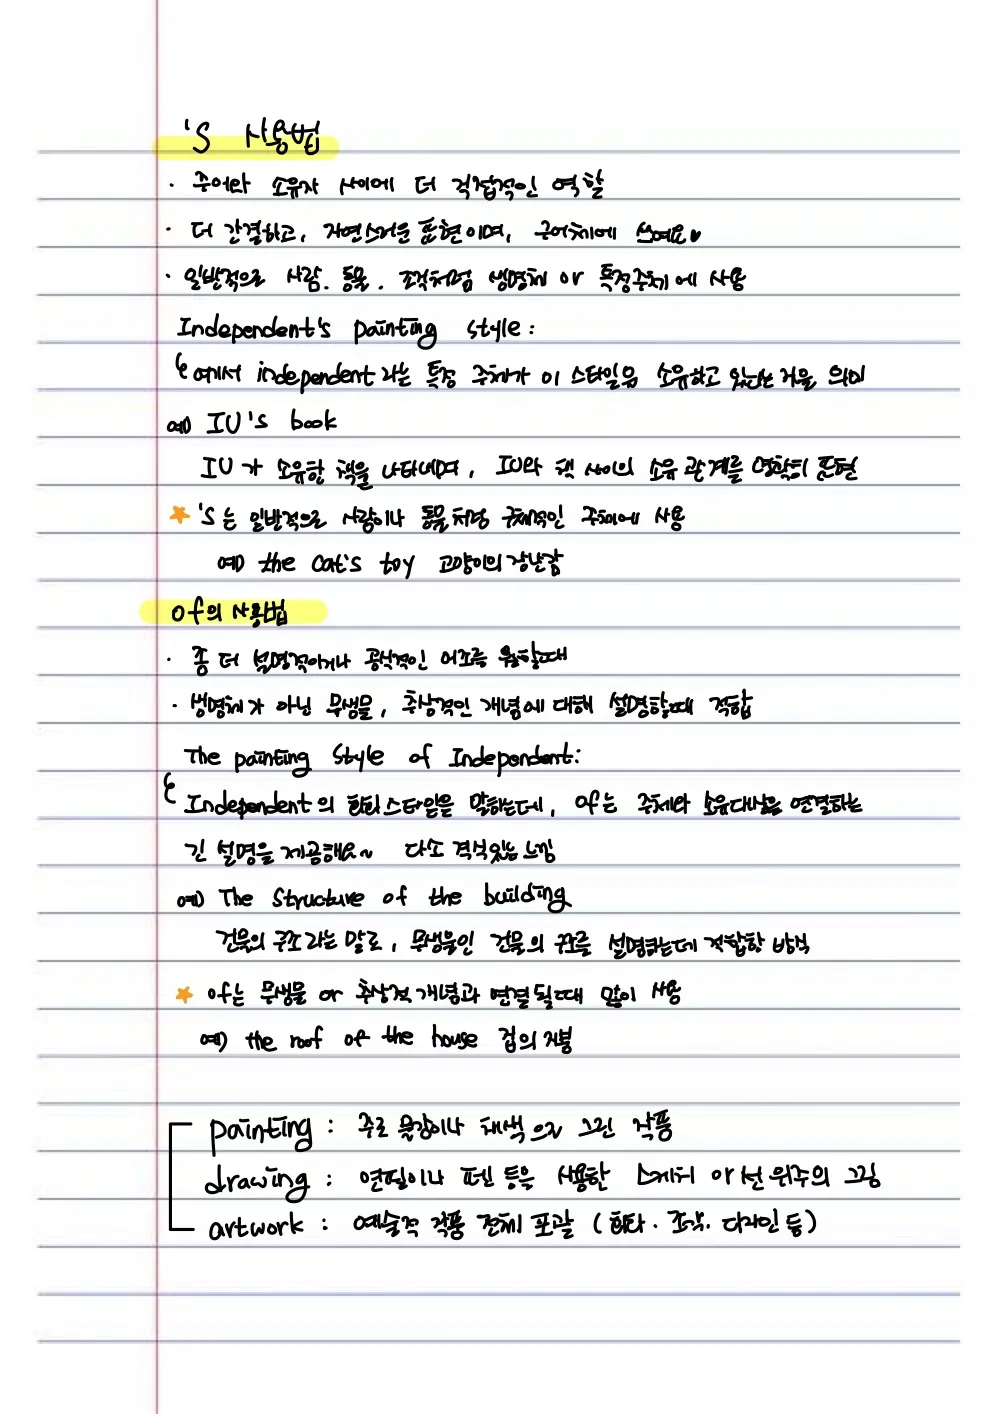 's 사용법
· 주어와 소유자 사이에 더 직접적인 역할
· 더 간결하고, 자연스러운 표현이며, 구어체에 쓰여요♥
· 일반적으로 사람. 동물. 조직처럼 생명체 or 특정주체에 사용
Independent's painting style :
에서 independent라는 특정 주체가 이 스타일을 소유하고 있다는 것을 의미
예) IU's book
IU가 소유한 책을 나타내며, IU와 책 사이의 소유관계를 명확히 표현
★ 's는 일반적으로 사람이나 동물처럼 구체적인 주체에 사용
예) the cat's toy 고양이의 장난감
of의 사용법
· 좀 더 설명적이거나 공식적인 어조를 원할때
· 생명체가 아닌 무생물, 추상적인 개념에 대해 설명할때 적합
The painting style of Independent:
Independent의 화화스타일을 말하는데, of는 주체와 소유대상을 연결하는
긴 설명을 제공해요~ 다소 격식있는 느낌
예) The structure of the building
건물의 구조라는 말로, 무생물인 건물의 구조를 설명하는데 적합한 방식
★ of는 무생물 or 추상적 개념과 연결될때 많이 사용
예) the roof of the house 집의 지붕
painting : 주로 물감이나 채색으로 그린 작품
drawing : 연필이나 펜 등을 사용한 스케치 or 선 위주의 그림
artwork : 예술적 작품 전체 포괄 (회화. 조각. 디자인 등)